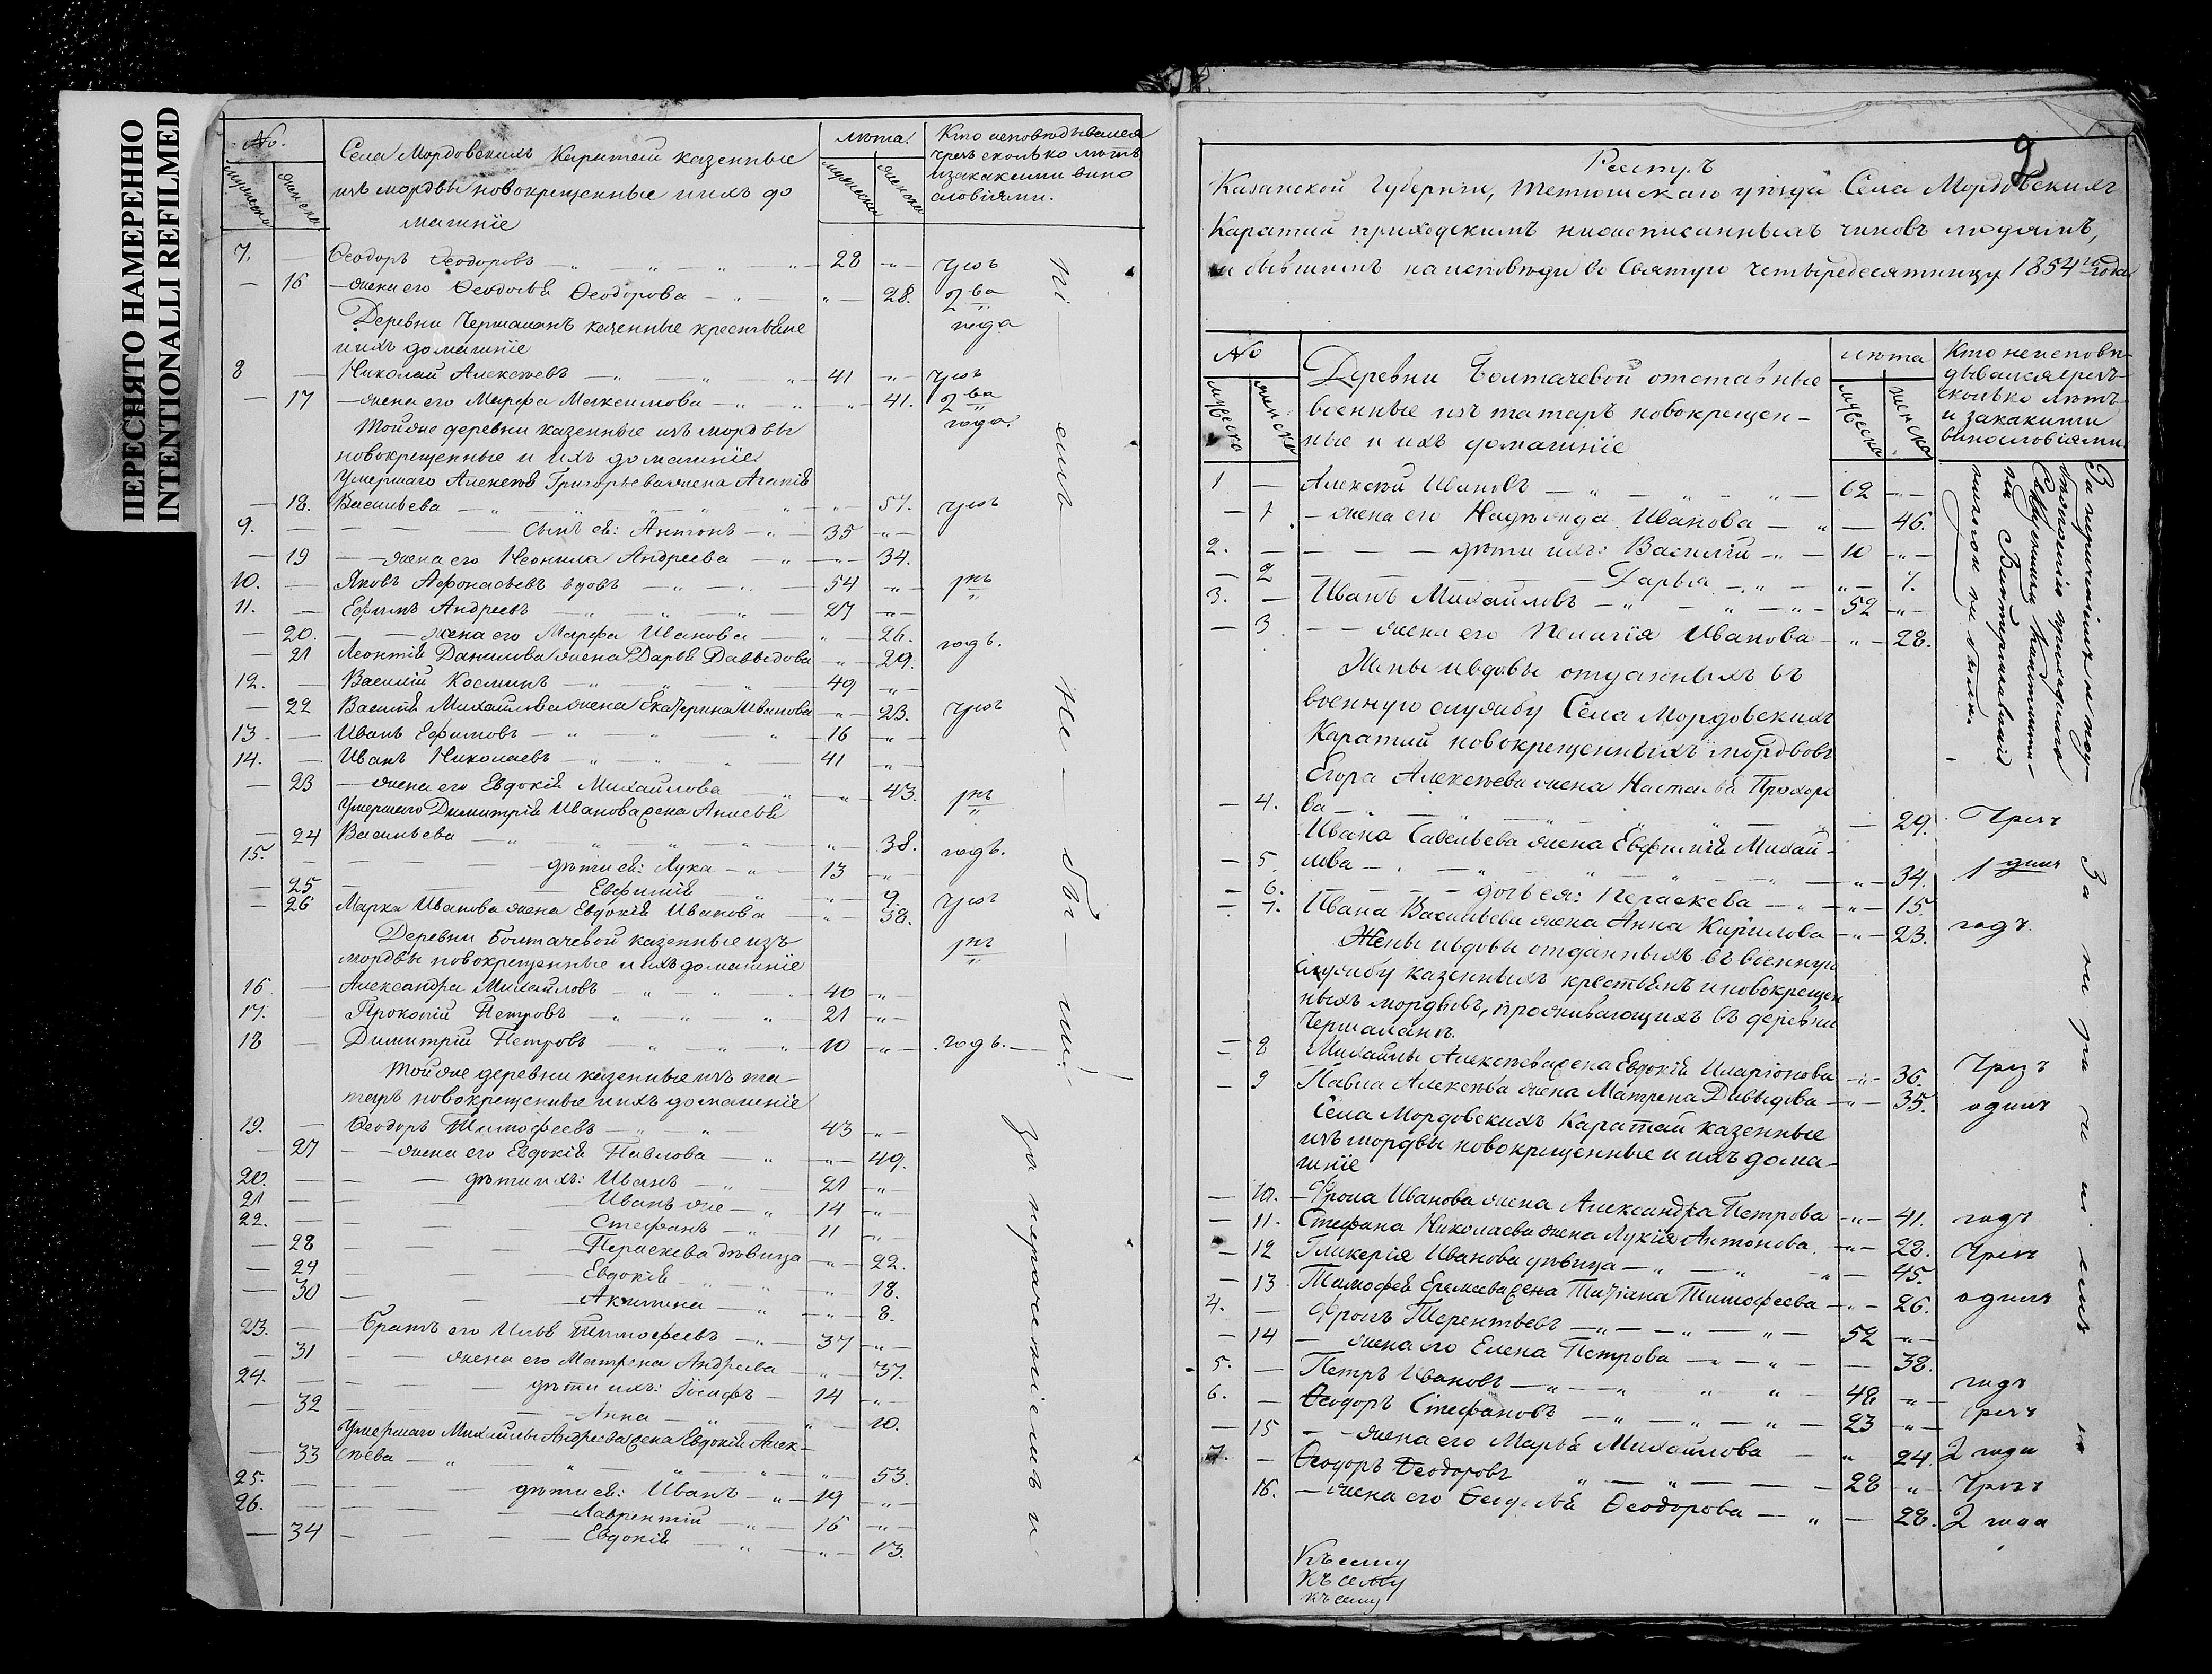 ПЕРЕСНЯТО НАМЕРЕННО
INTENTIONALLI REFILMED
No.
мужеска
женска
Села Мордовскихъ Каратай казенные
изъ мордвы новокрещенные и ихъ до
машніе
лѣта.
мужеска
женска
Кто исповѣдывался
чрезъ сколько лѣтъ
и за какими вино
словіями.
7. — Ѳеодоръ Ѳеодоровъ — 28 чрезъ
— 16 — жена его Ѳеодосья Ѳеодорова — 28. 2ва
Деревни Чершаланъ казенные крестьяне года
и ихъ домашніе
8 — Николай Алексѣевъ — 41 чрезъ
— 17 — жена его Марѳа Максимова — 41. 2ва
Той же деревни казенные изъ мордвы года.
новокрещенные и ихъ домашніе
Умершаго Алексѣя Григорьева жена Агапія
— 18. Васильева — 57. чрезъ
9. — сынъ ея: Антонъ — 35
— 19 — жена его Неонила Андреева — 34.
10. — Яковъ Афонасьевъ вдовъ — 54
11. — Ефимъ Андреевъ 27
— 20. — жена его Марфа Иванова — 26.
— 21 Леонтія Данилова жена Дарья Давыдова — 29. годъ.
12. — Василій Косминъ — 49
— 22 Василія Михайлова жена Екатерина Иванова — 23. чрезъ
13. — Иванъ Ефимовъ — 16
14. — Иванъ Николаевъ — 41
— 23 — жена его Евдокія Михайлова — 43.
Умершаго Димитрія Иванова жена Анисья
— 24 Васильева — 38. годъ.
15. — дѣти ея: Лука — 13
— 25 — Евфимія — 9.
— 26 Марка Иванова жена Евдокія Иванова — 38. чрезъ
Деревни Болтачевой казенные изъ
мордвы новокрещенные и ихъ домашніе
16 — Александра Михайловъ — 40
17. — Прокопій Петровъ — 21
18 — Димитрій Петровъ — 10 годъ.
Той же деревни казенные изъ та-
таръ новокрещенные и ихъ домашніе
19. — Ѳеодоръ Тимофеевъ — 43
— 27 — жена его Евдокія Павлова — 49.
20. — дѣти ихъ: Иванъ — 21
21 — Иванъ же — 14
22. — Стефанъ — 11
— 28 — Параскева дѣвица — 22.
— 29 — Евдокія — 18.
— 30 — Акилина — 8.
23. — Братъ его Илья Тимофеевъ — 37
— 31 — жена его Матрена Андреева — 37.
24. — дѣти ихъ: Іосифъ — 14
— 32 — Анна — 10.
Умершаго Михаилы Андреева жена Евдокія Алек-
— 33 сѣева — 53.
25. — дѣти ея: Иванъ — 19
26. — Лаврентій — 16
— 34 — Евдокія — 13.
не были за
2
Реестръ
Казанской Губерніи, Тетюшскаго уѣзда Села Мордовскихъ
Каратай приходскимъ нижеписанныхъ чиновъ людямъ,
не бывшимъ на исповѣди во Святую четыредесятницу 1854го года
No
мужеска
женска
Деревни Болтачевой отставные
военные изъ татаръ новокрещен-
ные и ихъ домашніе
лѣта
мужеска
женска
Кто неисповѣ-
дывался чрезъ
сколько лѣтъ
и за какими
винословіями.
1 — Алексѣй Ивановъ — 62
— 1. — жена его Надежда Иванова — 46.
2. — дѣти ихъ: Василій — 10
— 2 — Дарья — 7.
3. — Иванъ Михайловъ — 52
— 3 — жена его Пелагія Иванова — 28.
Жены и вдовы отданныхъ въ
военную службу Села Мордовскихъ
Каратай новокрещенныхъ мордвовъ
Егора Алексѣева жена Настасья Прохоро
— 4. ва — 29. Чрезъ
Ивана Савельева жена Евфимія Михай-
— 5 лова — 34. 1 динъ
— 6. — дочь ея: Параскева — 15.
— 7. Ивана Васильева жена Анна Кирилова — 23. годъ.
Жены и вдовы отданныхъ въ военную
службу казенныхъ крестьянъ и новокрещен
ныхъ мордвовъ, проживающихъ въ деревни
Чершаланъ.
— 8 Михайлы Алексѣева жена Евдокія Иларіонова — 36. Чрезъ
— 9 Павла Алексѣва жена Матрена Давыдова — 35. одинъ
Села Мордовскихъ Каратай казенные
изъ мордвы новокрещенные и ихъ дома-
шніе
— 10. — Фрола Иванова жена Александра Петрова — 41. годъ
— 11. Стефана Николаева жена Лукія Антонова. — 22. Чрезъ
— 12 Гликерія Иванова дѣвица — 45.
— 13 Тимофея Еремеева жена Татіана Тимофеева — 26. одинъ
4. — Фролъ Терентьевъ — 52
— 14 — жена его Елена Петрова — 38.
5. — Петръ Ивановъ — 48 годъ
6. — Ѳеодоръ Стефановъ — 23 Чрезъ
— 15 — жена его Марья Михайлова — 24. 2 года
7. — Ѳеодоръ Ѳеодоровъ — 28 Чрезъ
16. — жена его Ѳеодосья Ѳеодорова — 28. 2 года
Къ сему
Къ сему
къ сему